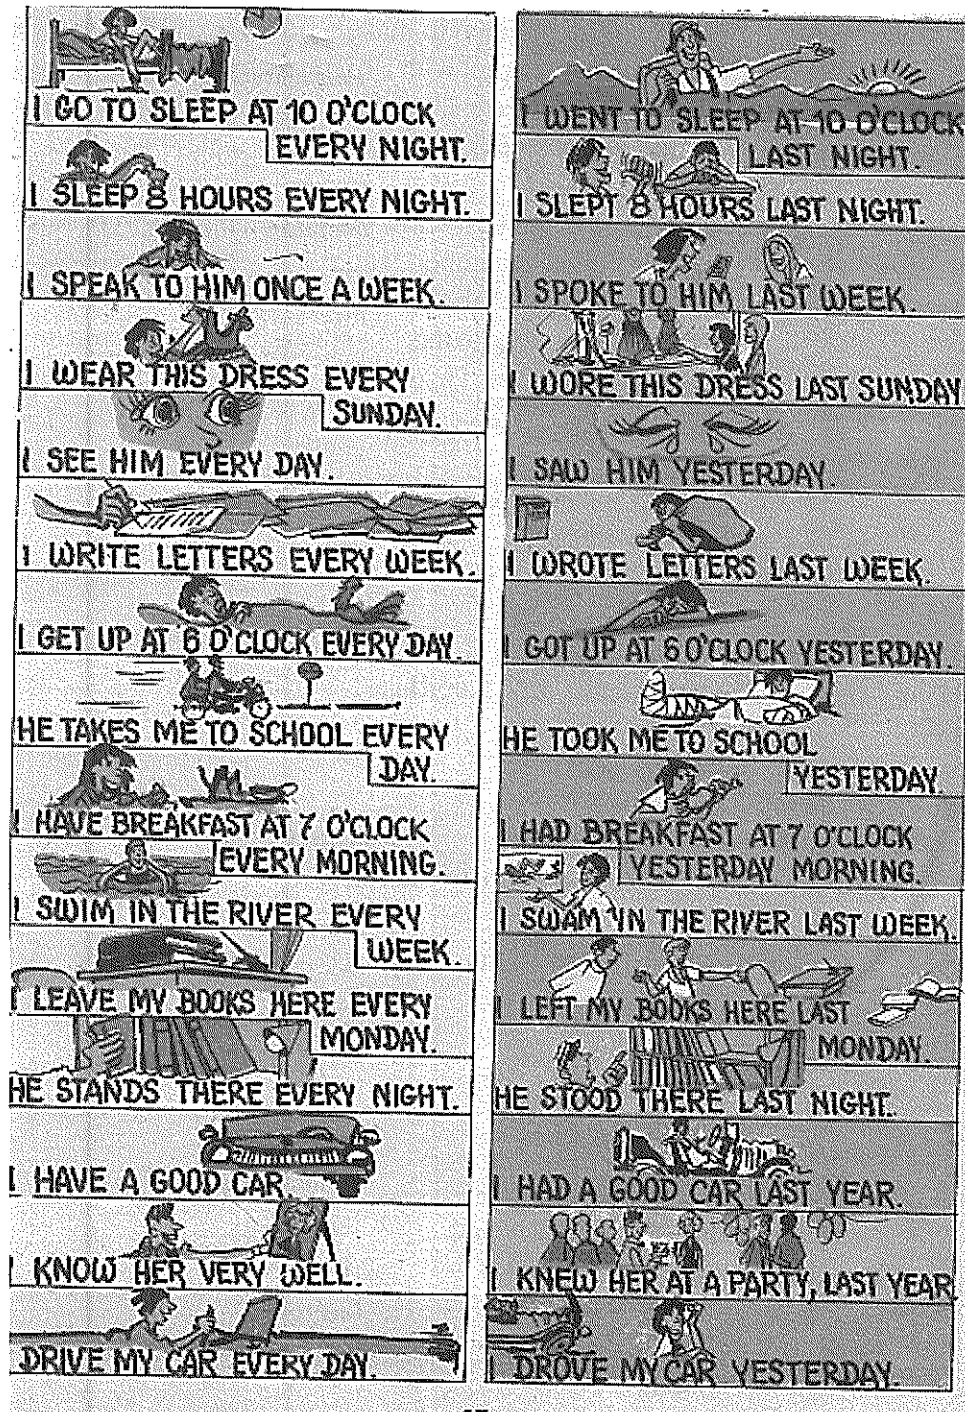 I GO TO SLEEP AT 10 O'CLOCK
EVERY NIGHT.
I SLEEP 8 HOURS EVERY NIGHT.
I SPEAK TO HIM ONCE A WEEK.
I WEAR THIS DRESS EVERY
SUNDAY.
I SEE HIM EVERY DAY.
I WRITE LETTERS EVERY WEEK.
I GET UP AT 6 O'CLOCK EVERY DAY.
HE TAKES ME TO SCHOOL EVERY
DAY.
I HAVE BREAKFAST AT 7 O'CLOCK
EVERY MORNING.
I SWIM IN THE RIVER EVERY
WEEK.
I LEAVE MY BOOKS HERE EVERY
MONDAY.
HE STANDS THERE EVERY NIGHT.
I HAVE A GOOD CAR.
I KNOW HER VERY WELL.
DRIVE MY CAR EVERY DAY.
I WENT TO SLEEP AT 10 O'CLOCK
LAST NIGHT.
I SLEPT 8 HOURS LAST NIGHT.
I SPOKE TO HIM LAST WEEK.
I WORE THIS DRESS LAST SUNDAY
I SAW HIM YESTERDAY.
I WROTE LETTERS LAST WEEK.
I GOT UP AT 6 O'CLOCK YESTERDAY.
HE TOOK ME TO SCHOOL
YESTERDAY.
I HAD BREAKFAST AT 7 O'CLOCK
YESTERDAY MORNING.
I SWAM IN THE RIVER LAST WEEK.
I LEFT MY BOOKS HERE LAST
MONDAY.
HE STOOD THERE LAST NIGHT.
I HAD A GOOD CAR LAST YEAR.
I KNEW HER AT A PARTY, LAST YEAR
I DROVE MY CAR YESTERDAY.